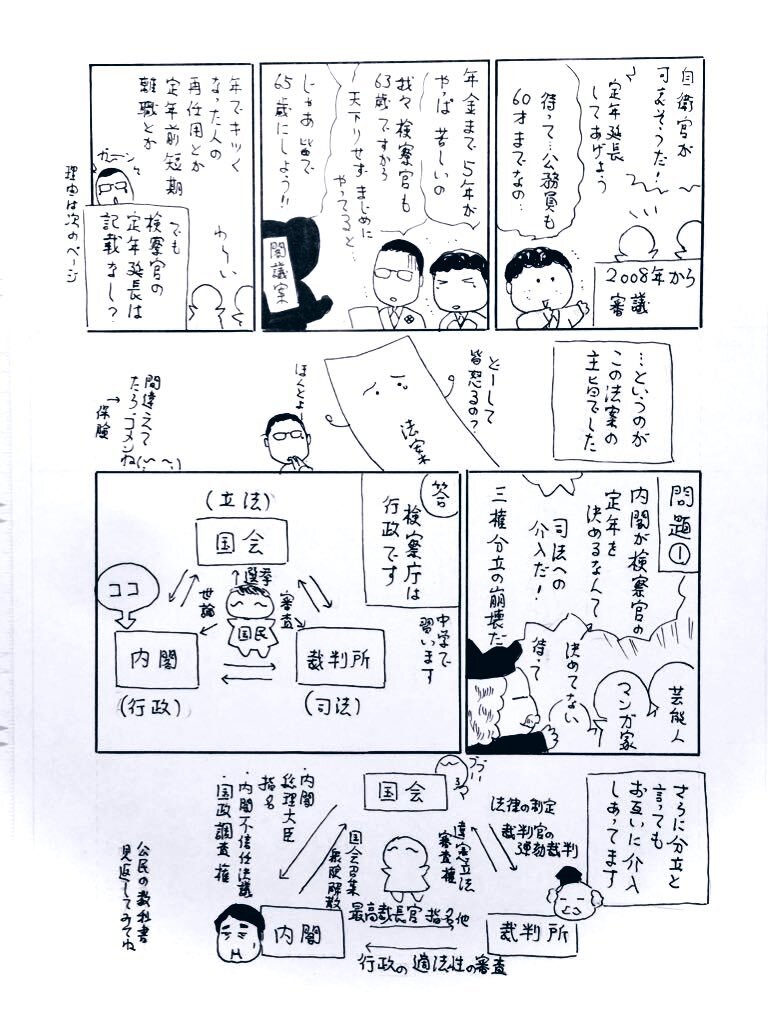 自衛官が
可哀そうだ!
定年延長
してあげよう
待って…公務員も
60才までなの…
2008年から
審議
年金まで5年が
やっぱ苦しいの
我々検察官も
63歳ですから
天下りせずまじめに
やってると…
じゃあ皆で
65歳にしよう!!
閣議案
年でキツく
なった人の
再任用とか
定年前短期
離職とか
わーい
ガーン
でも
検察官の
定年延長は
記載なし?
理由は次のページ
…というのが
この法案の
主旨でした
どーして
皆怒るの?
法案
ほんとよー
間違えて
たらゴメンね(;^~^)
→保険
問題①
内閣が検察官の
定年を
決めるなんて
司法への
介入だ!
三権分立の崩壊だ
芸能人
マンガ家
決めてない
待って
答
検察庁は
行政です
中学で
習います
(立法)
国会
選挙
世論
審査
国民
ココ
内閣
(行政)
裁判所
(司法)
さらに分立と
言っても
お互いに介入
しあってます
国会
法律の制定
裁判官の
弾劾裁判
違憲立法
審査権
国会召集
衆院解散
・内閣
総理大臣
指名
・内閣不信任決議
・国政調査権
内閣
最高裁長官 指名他
行政の適法性の審査
裁判所
公民の教科書
見返してみてね